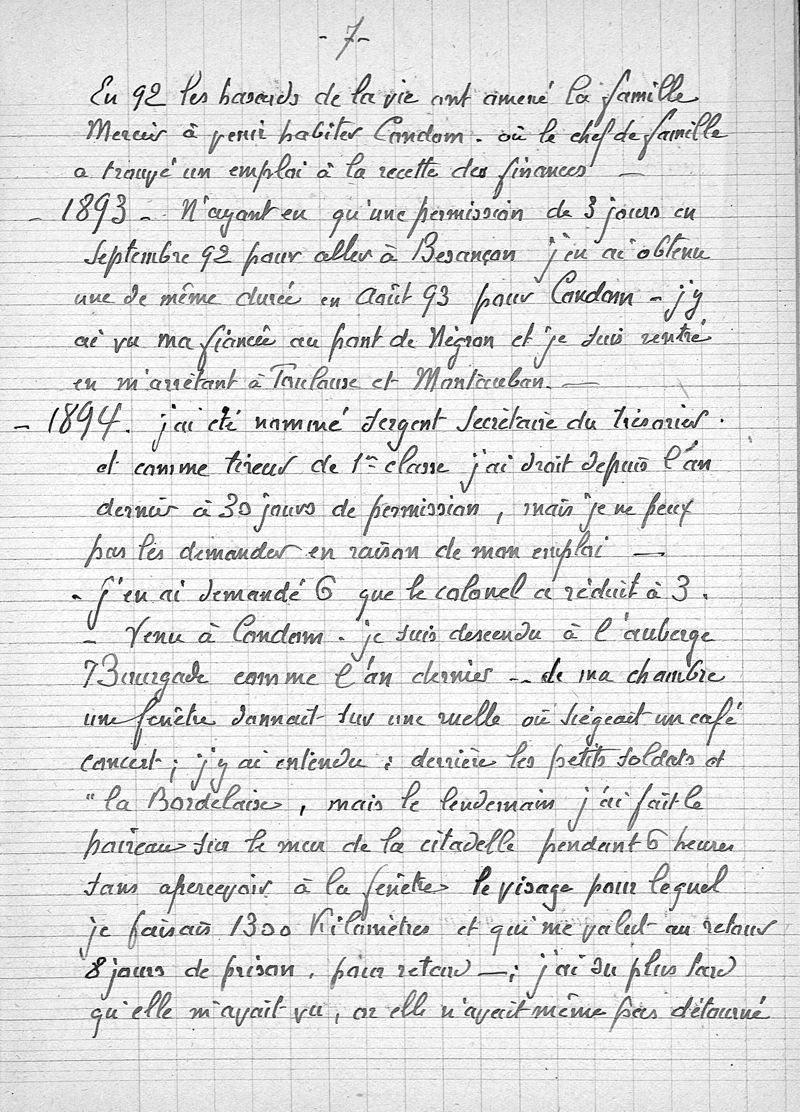 - 7 -
En 92 les hasards de la vie ont amené la famille
Mercier à venir habiter Condom. où le chef de famille
a trouvé un emploi à la recette des finances —
- 1893 - N'ayant eu qu'une permission de 3 jours en
Septembre 92 pour aller à Besançon j'en ai obtenu
une de même durée en Août 93 pour Condom - j'y
ai vu ma fiancée au pont de Nègron et je suis rentré
en m'arrêtant à Toulouse et Montauban. —
- 1894. j'ai été nommé sergent secrétaire du trésorier.
et comme tireur de 1re classe j'ai droit depuis l'an
dernier à 30 jours de permission, mais je ne peux
pas les demander en raison de mon emploi —
- j'en ai demandé 6 que le colonel a réduit à 3.
- Venu à Condom. je suis descendu à l'auberge
Bourgade comme l'an dernier -. de ma chambre
une fenêtre donnait sur une ruelle où siégeait un café
concert; j'y ai entendu: derrière les petits soldats et
"la Bordelaise, mais le lendemain j'ai fait le
poireau sur le mur de la citadelle pendant 6 heures
sans apercevoir à la fenêtre le visage pour lequel
je faisais 1300 Kilomètres et qui me valut au retour
8 jours de prison, pour retard —; j'ai su plus tard
qu'elle m'avait vu, or elle n'avait même pas détourné